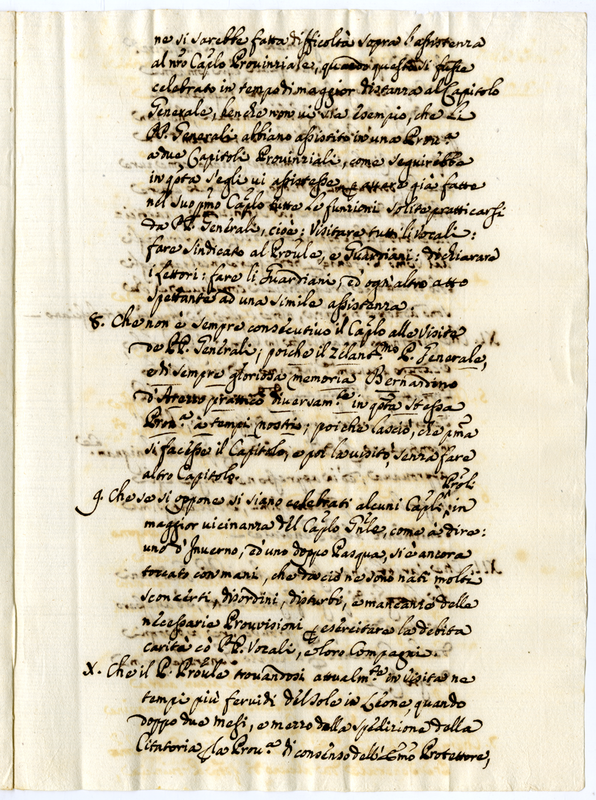 ne si sarebbe fatta difficoltà sopra l'assistenza
al nro Caplo Prouinziale, quando questo si fosse
celebrato in tempo di maggior distanza al Capitolo
Generale, benche non ui sia esempio, che li
PP. Generali abbiano assistito in una Pron.a
a due Capitoli Prouinziali, come seguirebbe
in qsta s'egli ui assistesse, auer già fatte
nel suo pmo Caplo tutte le funzioni solite pratticarsi
da PP. Generali, cioè: Visitare tutti li Vocali:
fare sindicato al Proule, e Guardiani: dichiarare
i lettori: fare li Guardiani, ed ogn'altro atto
spettante ad una simile assistenza.
8. Che non è sempre consecutiuo il Caplo alle Visite
de PP. Generali; poiche il zelant.mo P. Generale,
e di sempre gloriosa memoria Bernardino
d'Arezzo pratticò diuersam.te in qsta stessa
Pron.a a tempi nostri, poiche lasciò, che pma
si facesse il Capitolo, e poi la uisitò, senza fare
altro Capitolo.
9. Che se si oppone si siano celebrati alcuni Capli Proli in
maggior uicinanza del Caplo Gnle, come a dire:
uno d'Inuerno, ed uno doppo Pasqua, si è ancora
toccato con mani, che da ciò ne sono nati molti
sconcerti, disordini, disturbi, e mancanze delle
necessarie Prouisioni esercitare la debita
carità cò PP. Vocali, e loro Compagni.
X. Che il P. Proule trouandosi attualm.te in uisita ne
tempi più feruidi del Sole in Leone, quando
doppo due mesi, e mezzo dalla spedizione della
Citatoria la Prou.a di consenso dell'Emo Protettore,